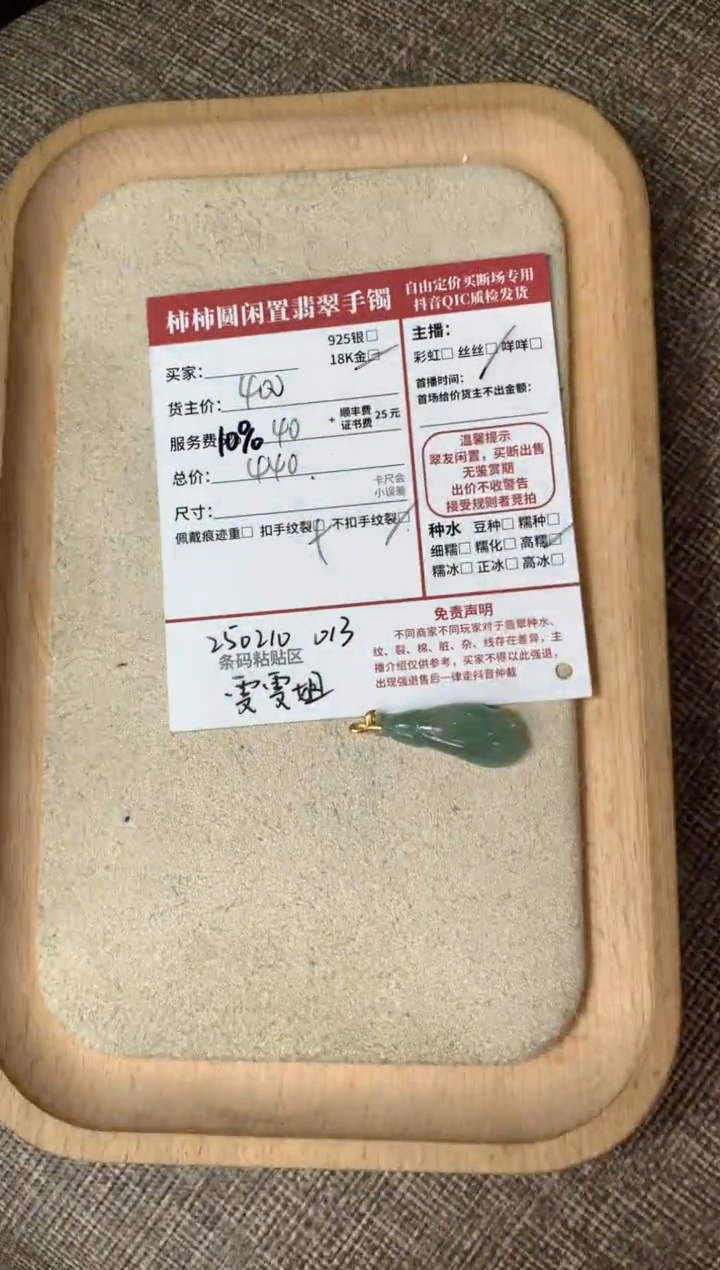 柿柿圆闲置翡翠手镯
自由定价买断场专用
抖音QIC质检发货
925银□
18K金□
买家:
货主价: 400
服务费10% 40 + 顺丰费 证书费 25元
总价: 440.
卡尺会
小误差
尺寸:
佩戴痕迹重□ 扣手纹裂□ 不扣手纹裂□
主播:
彩虹□ 丝丝□ 咩咩□
首播时间:
首场给价货主不出金额:
温馨提示
翠友闲置,买断出售
无鉴赏期
出价不收警告
接受规则者竞拍
种水 豆种□ 糯种□
细糯□ 糯化□ 高糯□
糯冰□ 正冰□ 高冰□
250210 013
条码粘贴区
雯雯姐
免责声明
不同商家不同玩家对于翡翠种水、
纹、裂、棉、脏、杂、线存在差异,主
播介绍仅供参考,买家不得以此强退,
出现强退售后一律走抖音仲裁